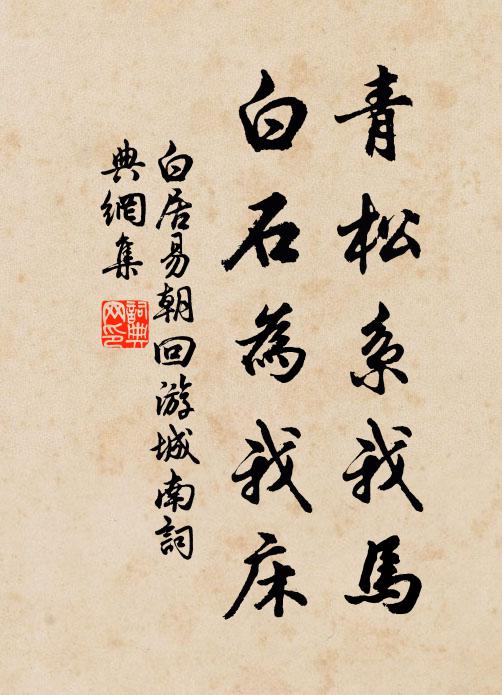 青松系我馬
白石為我床
白居易朝回游城南詞
典網集
詞典
网印